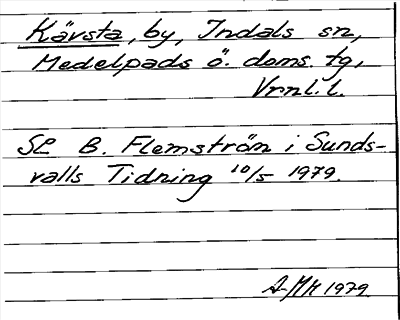 Kävsta, by, Indals sn,
Medelpads ö. doms. tg,
Vrnl. l.
Se B. Flemström i Sunds-
valls Tidning 10/5 1979.
A-MH 1979